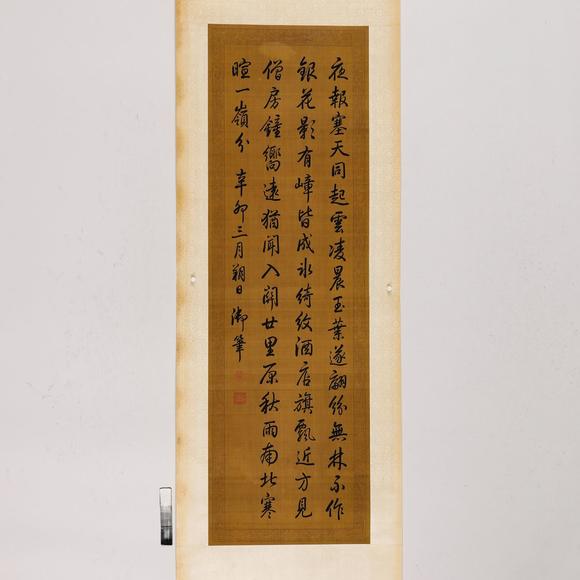 夜報塞天同起雲凌晨玉葉遂翩紛無林不作
銀花影有嶂皆成冰綺紋酒店旗飄近方見
僧房鐘響遠猶聞入關廿里原秋雨南北寒
暄一嶺分 辛卯三月朔日 御筆